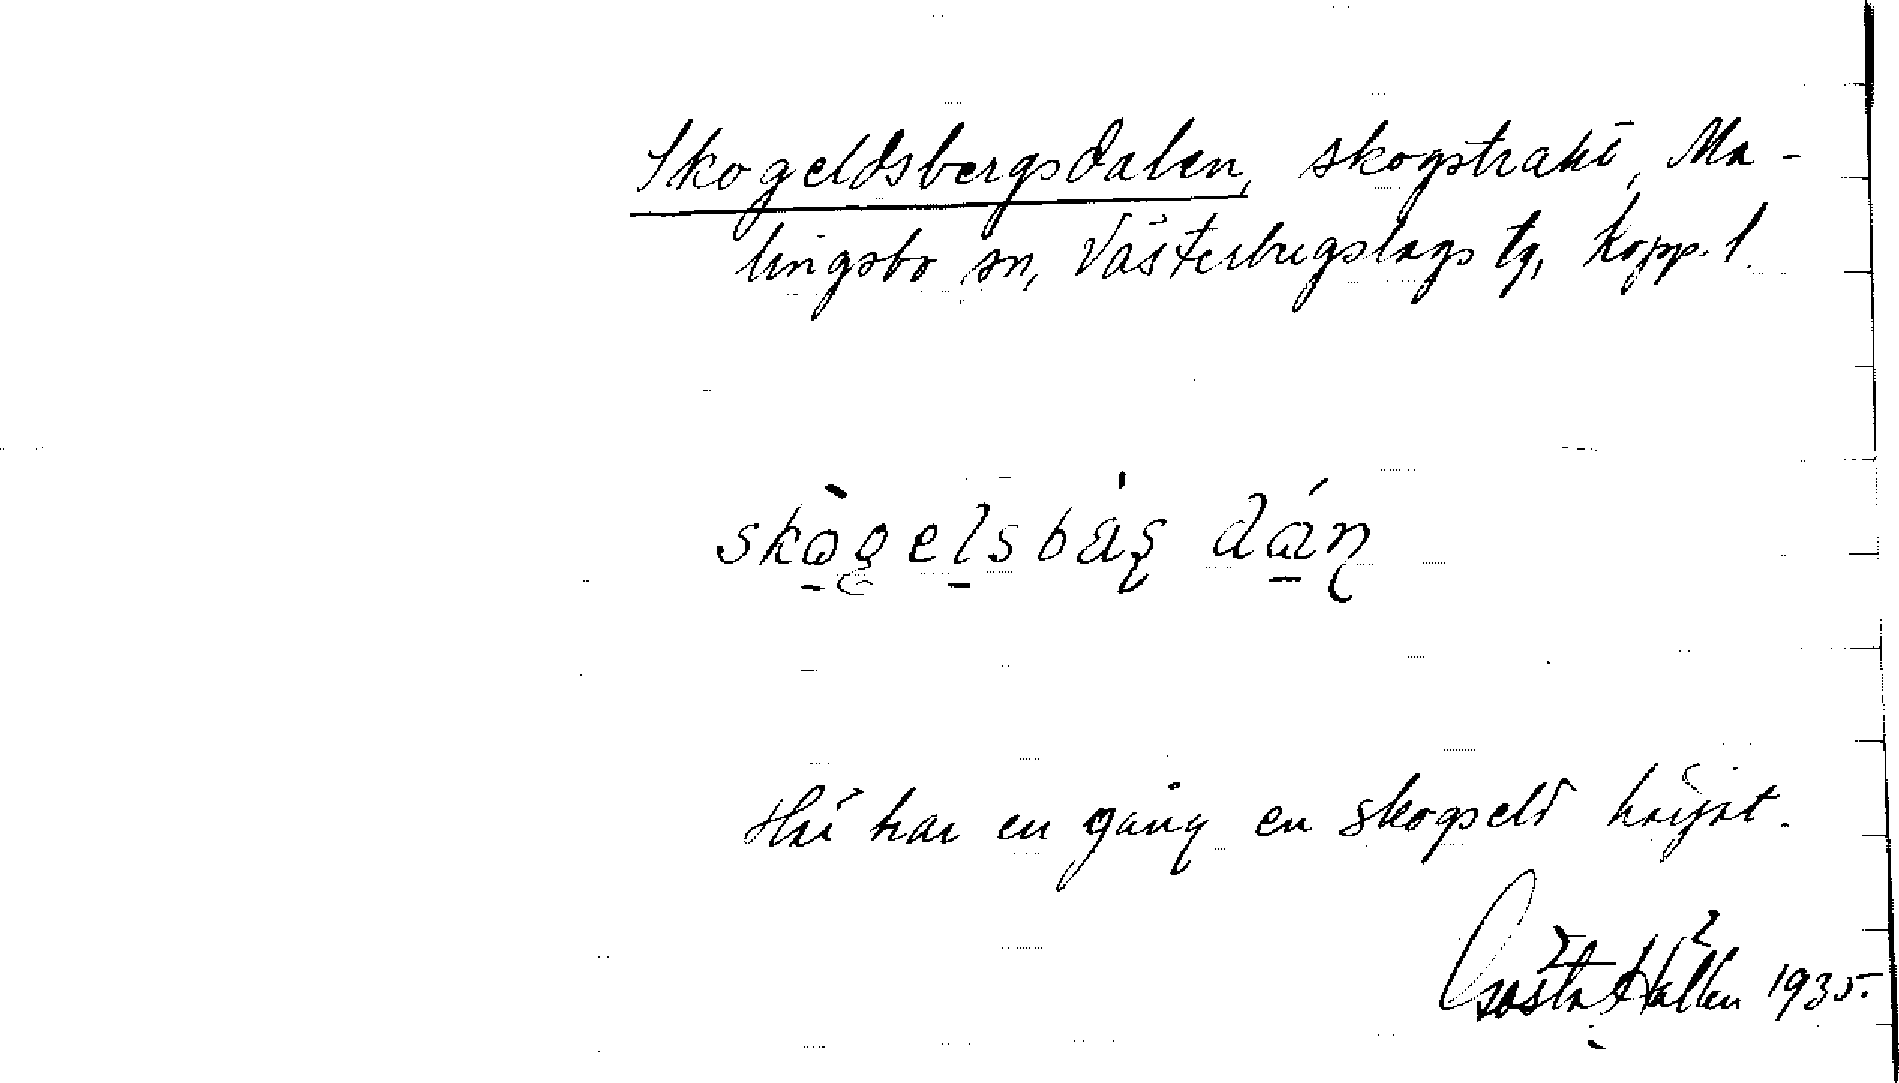 Skogeldsbergsdalen, skogstrakt, Ma-
lingsbo sn, Västerbergslags tg, Kopp. l.
skògelsbáș dáṇ
Här har en gång en skogseld härjat.
Gösta Hállén 1935.